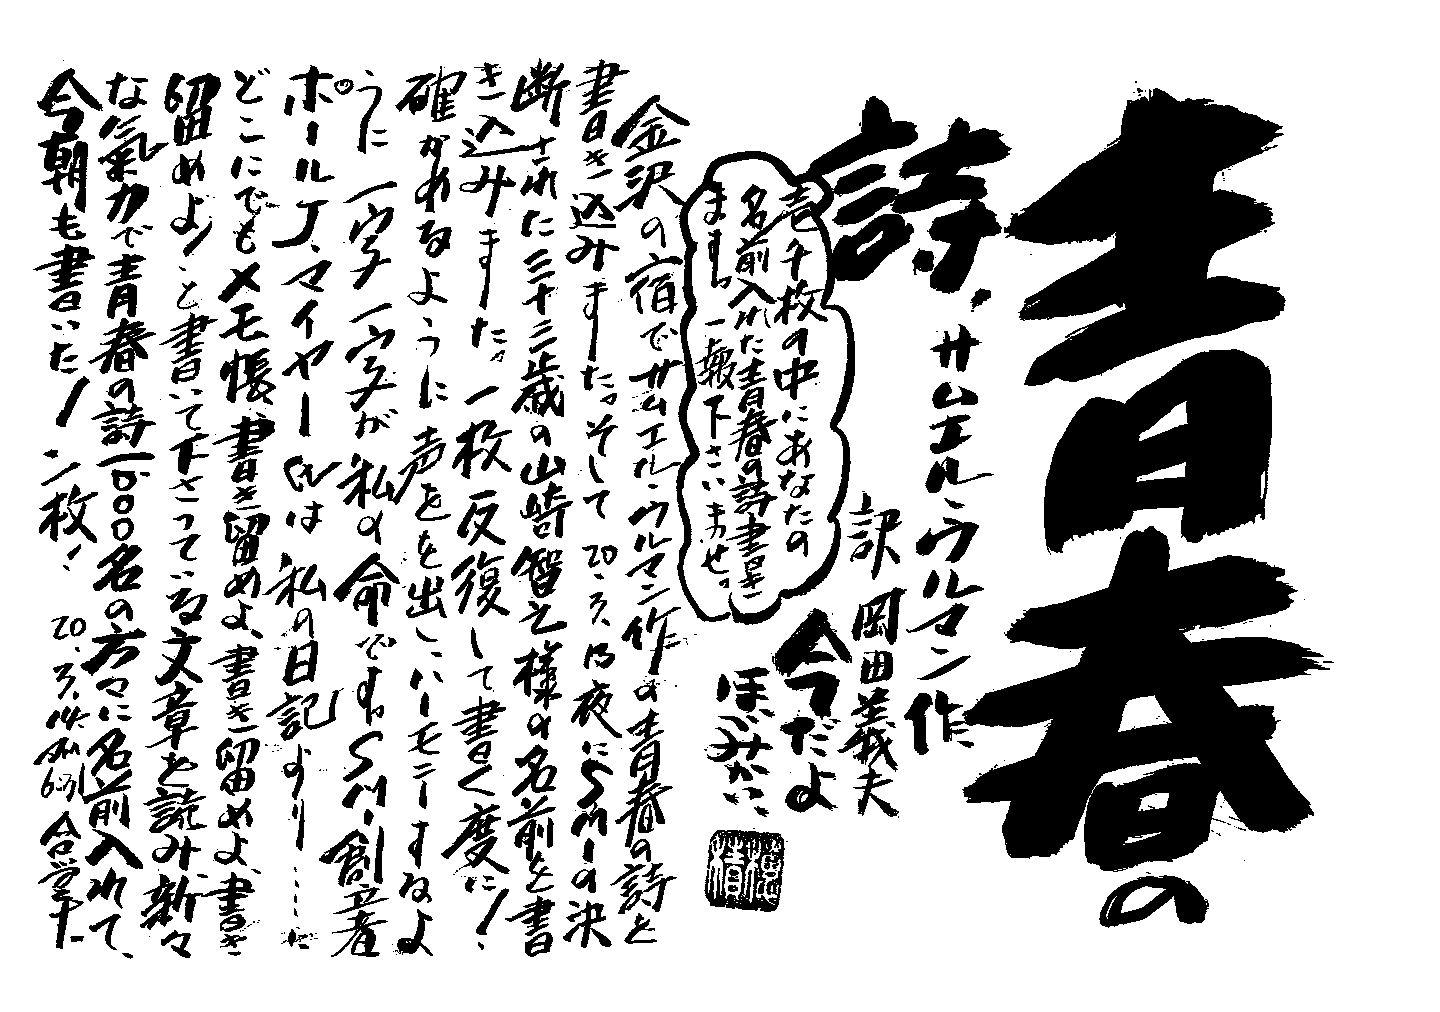 青春の
詩、サムエル・ウルマン作
訳 岡田義夫
今だよ
ほごみかい、
壱千枚の中にあなたの
名前入れた青春の詩書き
ます。一報下さいませ。
金沢の宿でサムエル・ウルマン作の青春の詩を
書き込みました。そして20.3.13夜にSMIの決
断された三十三歳の山崎智之様の名前を書
き込みました。一枚反復して書く度に!
確かめるように声をを出しハーモニーするよ
うに一字一字が私の命です。SMI創立者
ポールJ、マイヤー氏は私の日記より……に
どこにでもメモ帳、書き留めよ、書き留めよ、書き
留めよ、と書いて下さっている文章を読み、新々
な氣力で青春の詩1000名の方々に名前入れて、
今朝も書いた!ン枚!20.3.14. 合掌